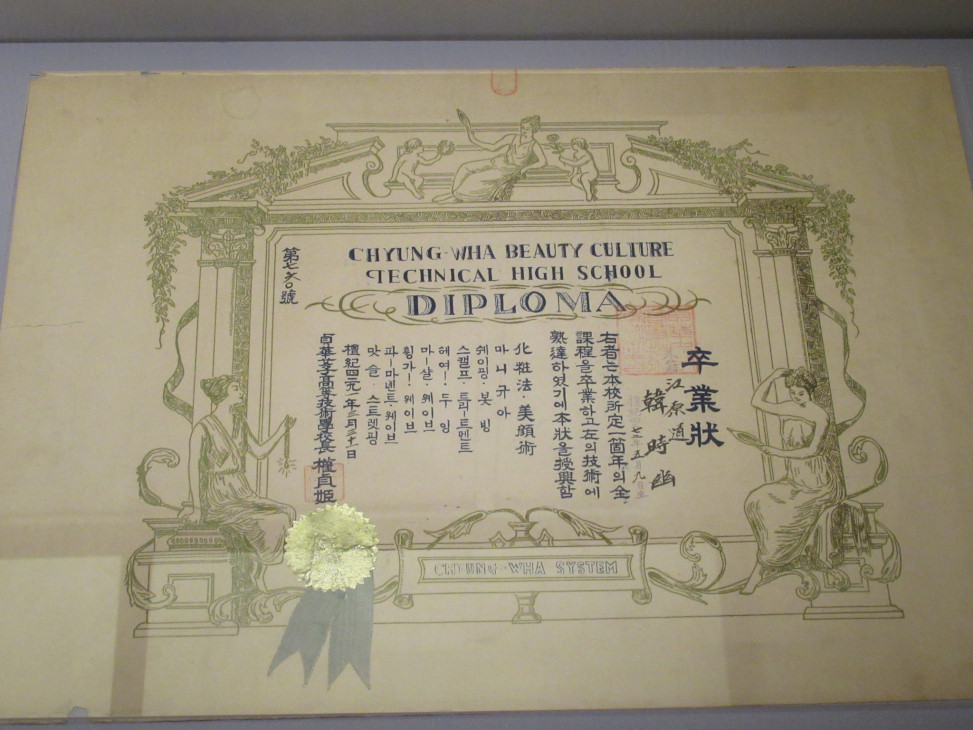 CHYUNG-WHA BEAUTY CULTURE
TECHNICAL HIGH SCHOOL
DIPLOMA
第七六〇號
卒業狀
江原道
韓時
右者는本校所定一箇年의全
課程을卒業하고左의技術에
熟達하였기이本狀을授與함
化粧法·美顔術
마니큐아
쉐이핑·봇빙
스캘프·트리트멘트
헤여!·두잉
마!살·웨이브
휭가!·웨이브
파!마넨트·웨이브
맛슬·스트렛핑
檀紀四二九一年三月二十一日
貞華高等技術學校長 權貞姬
CHEUNG-WHA SYSTEM